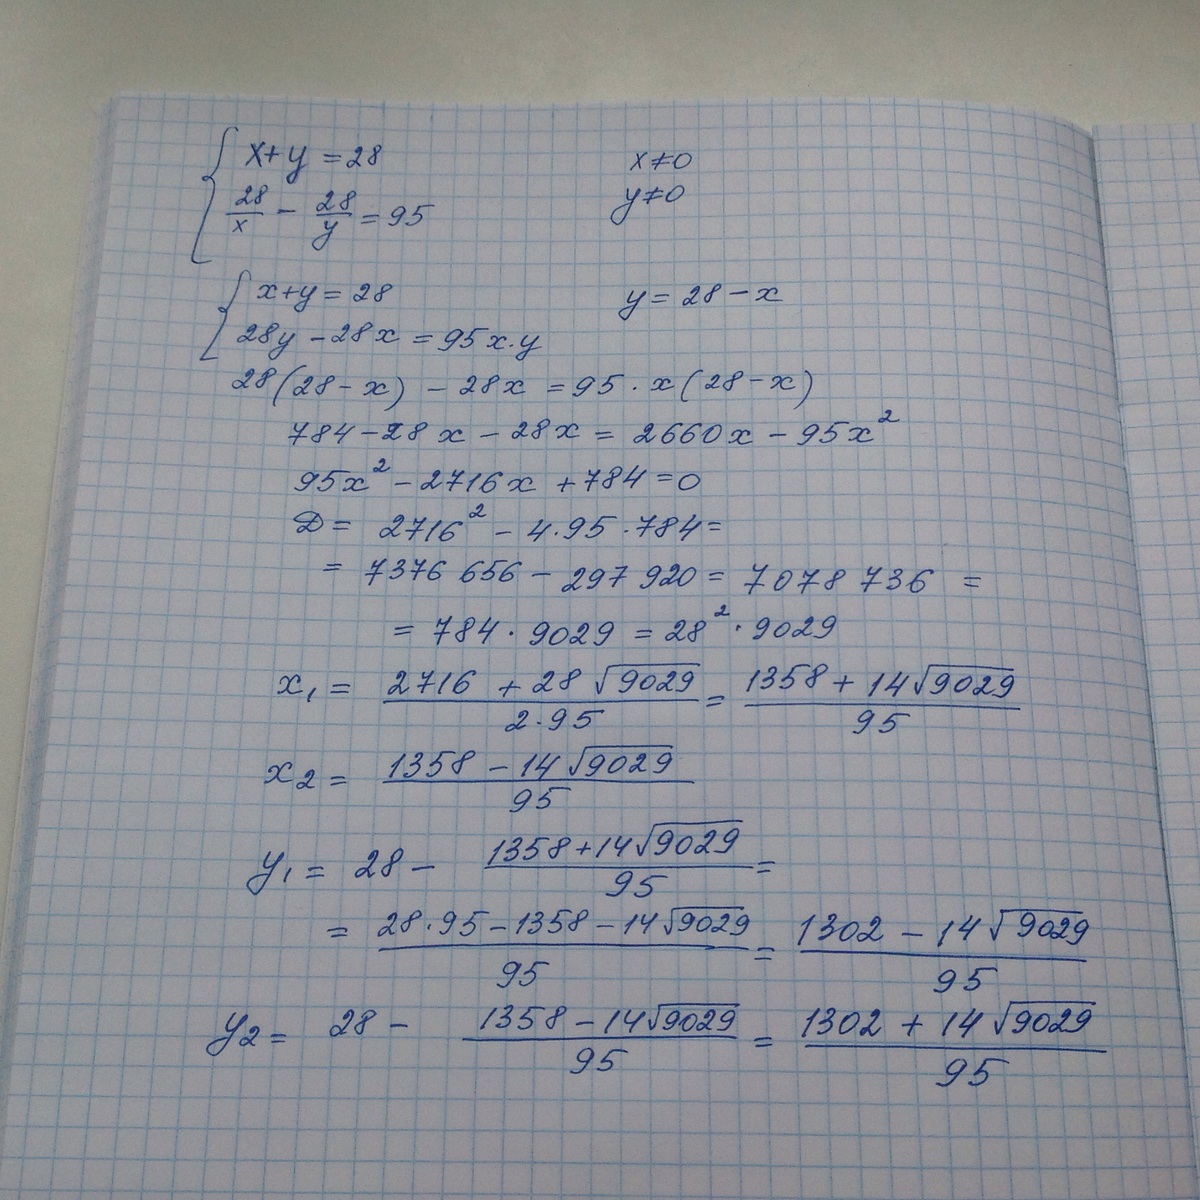 x+y=28 x≠0
28/x − 28/y = 95 y≠0
x+y=28 y=28−x
28y−28x=95x·y
28(28−x)−28x=95·x(28−x)
784−28x−28x=2660x−95x²
95x²−2716x+784=0
D=2716²−4·95·784=
=7376656−297920=7078736=
=784·9029=28²·9029
x₁=(2716+28√9029)/(2·95)=(1358+14√9029)/95
x₂=(1358−14√9029)/95
y₁=28−(1358+14√9029)/95=
=(28·95−1358−14√9029)/95=(1302−14√9029)/95
y₂=28−(1358−14√9029)/95=(1302+14√9029)/95